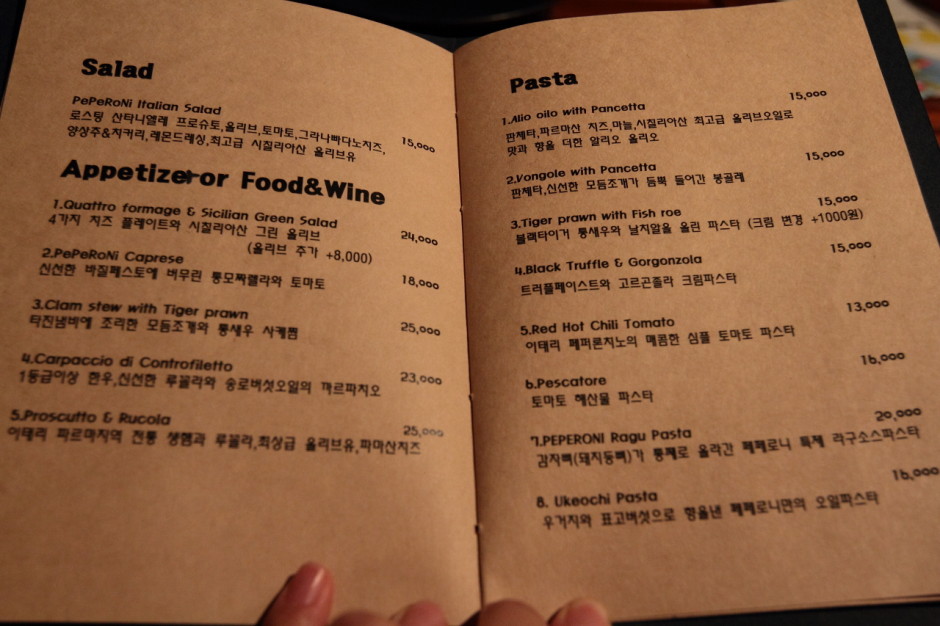 Salad
PePeRoNi Italian Salad
로스팅 산타니엘레 프로슈토,올리브,토마토,그라나빠다노치즈, 15,000
양상추&치커리,레몬드레싱,최고급 시칠리아산 올리브유
Appetizer or Food&Wine
1.Quattro formage & Sicilian Green Salad
4가지 치즈 플레이트와 시칠리아산 그린 올리브 24,000
(올리브 추가 +8,000)
2.PePeRoNi Caprese
신선한 바질페스토에 버무린 통모짜렐라와 토마토 18,000
3.Clam stew with Tiger prawn
타진냄비에 조리한 모듬조개와 통새우 사케찜 25,000
4.Carpaccio di Controfiletto
1등급이상 한우,신선한 루꼴라와 송로버섯오일의 까르파치오 23,000
5.Proscutto & Rucola
이태리 파르마지역 전통 생햄과 루꼴라,최상급 올리브유,파마산치즈 25,000
Pasta
1.Alio oilo with Pancetta 15,000
판체타,파르마산 치즈,마늘,시칠리아산 최고급 올리브오일로
맛과 향을 더한 알리오 올리오
2.Vongole with Pancetta 15,000
판체타,신선한 모듬조개가 듬뿍 들어간 봉골레
3.Tiger prawn with Fish roe 15,000
블랙타이거 통새우와 날치알을 올린 파스타 (크림 변경 +1000원)
4.Black Truffle & Gorgonzola 15,000
트러플페이스트와 고르곤졸라 크림파스타
5.Red Hot Chili Tomato 13,000
이태리 페퍼론치노의 매콤한 심플 토마토 파스타
6.Pescatore 16,000
토마토 해산물 파스타
7.PEPERONI Ragu Pasta 20,000
감자뼈(돼지등뼈)가 통째로 올라간 페페로니 특제 라구소스파스타
8. Ukeochi Pasta 16,000
우거지와 표고버섯으로 향을낸 페페로니만의 오일파스타